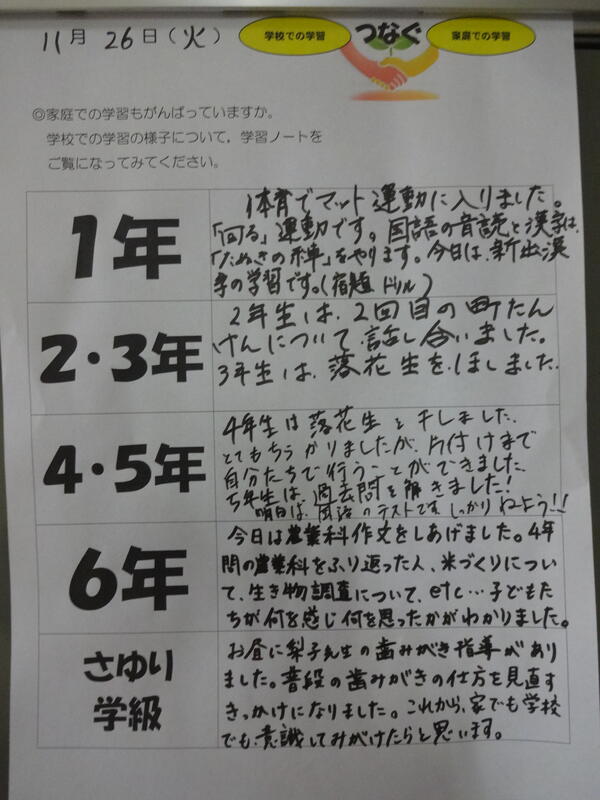 11月 26日(火)
学校での学習
つなぐ
家庭での学習
◎家庭での学習もがんばっていますか。
学校での学習の様子について，学習ノートを
ご覧になってみてください。
1年
体育でマット運動に入りました。
「回る」運動です。国語の音読と漢字は、
「たぬきの糸車」をやります。今日は、新出漢
字の学習です。(宿題 ドリル)
2・3年
2年生は、2回目の町たん
けんについて話し合いました。
3年生は、落花生をほしました。
4・5年
4年生は落花生を干しました。
とてもちらかりましたが、片付けまで
自分たちで行うことができました。
5年生は、過去問を解きました!
明日は、国語のテストです。しっかりねよう!!
6年
今日は農業科作文をしあげました。4年
間の農業科をふり返った人、米づくりについ
て、生き物調査について、etc…子どもた
ちが何を感じ何を思ったかがわかりました。
さゆり
学級
お昼に梨子先生の歯みがき指導があり
ました。普段の歯みがきの仕方を見直す
きっかけになりました。これから、家でも学校
でも意識してみがけたらと思います。